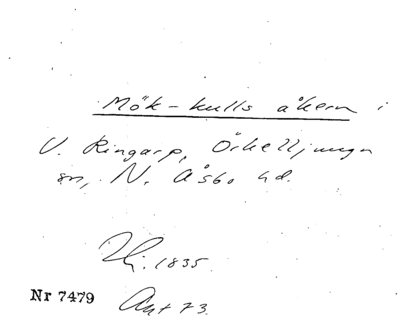 Mök-kulls åkern i
V. Ringarp, Örkelljunga
sn, N. Åsbo hd.
1835.
Nr 7479 Akt 73.